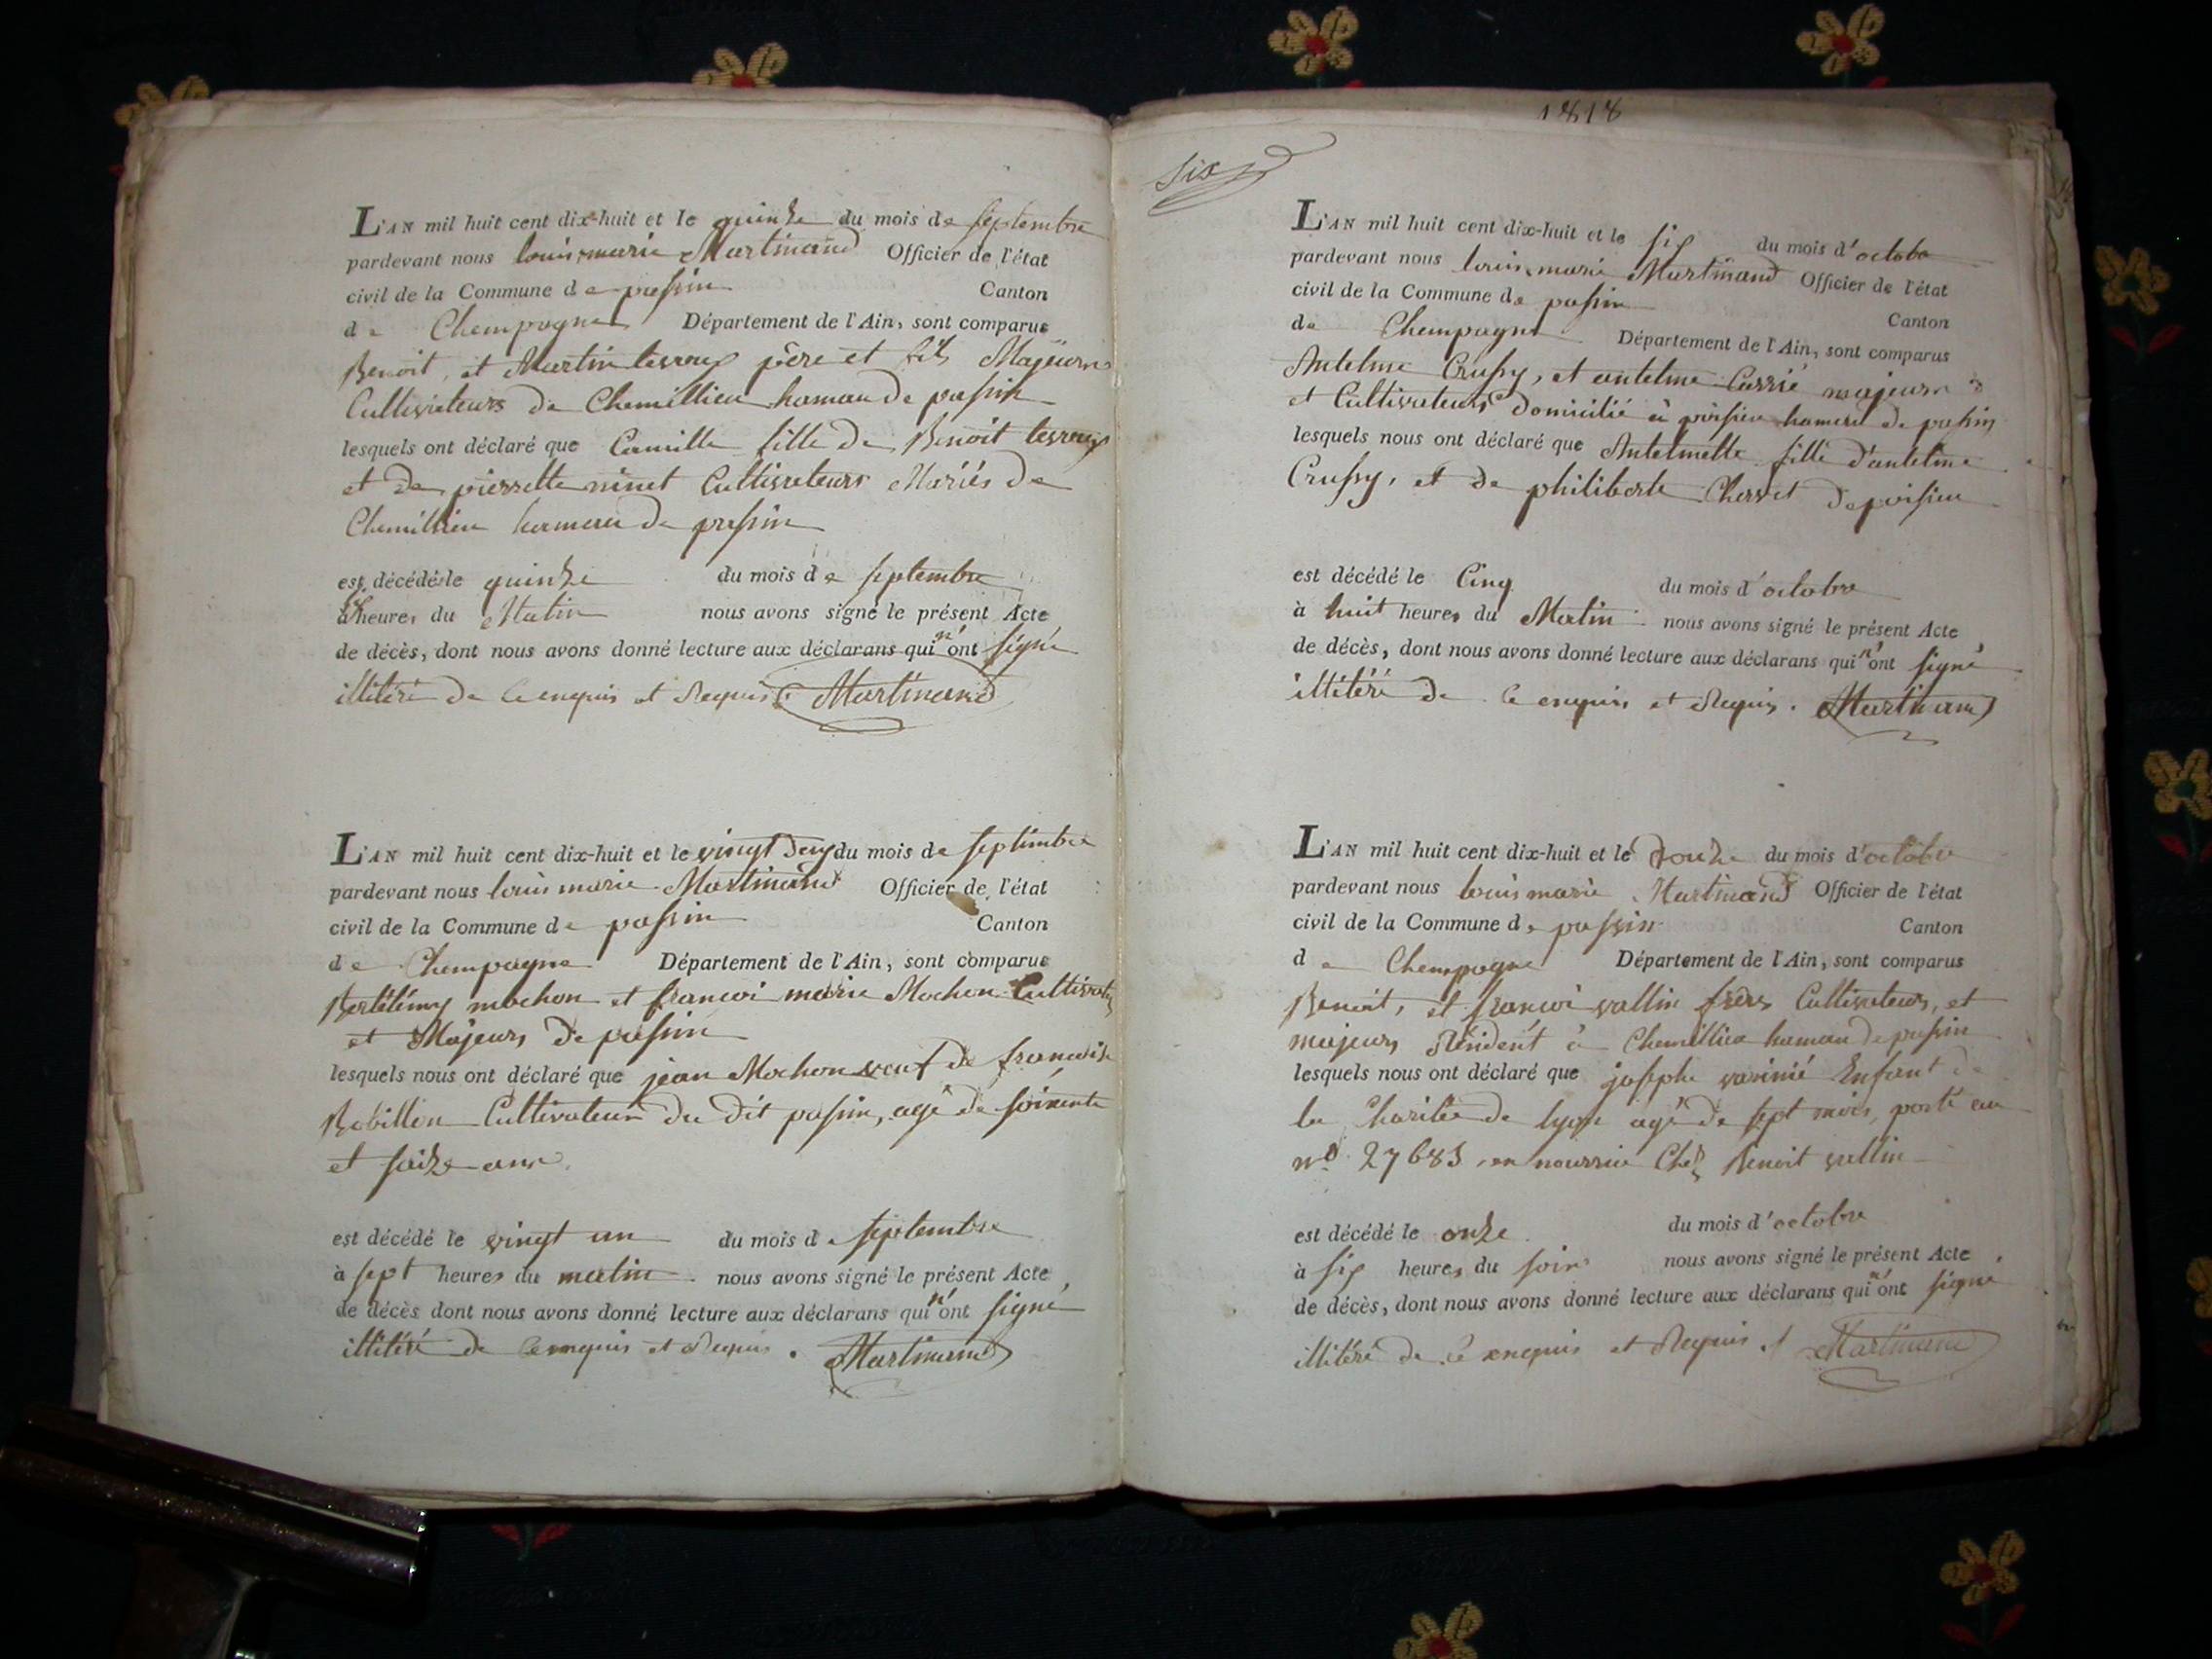 L'AN mil huit cent dix-huit et le quinze du mois de septembre
pardevant nous louis marie Martinand Officier de l'état
civil de la Commune de passin Canton
de Chempagne Département de l'Ain, sont comparus
Benoit, et Martin père et fils Majeurs
Cultivateurs de Chemillieu hamau de passin
lesquels ont déclaré que Camille fille de Benoit
et de pierrette ninet Cultivateurs Mariés de
Chemillieu hameau de passin
est décédé le quinze du mois de septembre
heures du Matin nous avons signé le présent Acte
de décès, dont nous avons donné lecture aux déclarans qui n'ont signé
illitéré de ce enquis et Requis. Martinand
L'AN mil huit cent dix-huit et le vingt deux du mois de septembre
pardevant nous louis marie Martinand Officier de l'état
civil de la Commune de passin Canton
de Chempagne Département de l'Ain, sont comparus
Bertélémy mochon et francoi marie Mochon
et Majeurs de passin
lesquels nous ont déclaré que jean Mochon veuf de francoise
Bobillon Cultivateur du dit passin, agé de soixente
et seize ans.
est décédé le vingt un du mois de septembre
à sept heures du matin nous avons signé le présent Acte
de décès dont nous avons donné lecture aux déclarans qui n'ont signé
illitéré de ce enquis et Requis. Martinand
1818
Six
L'AN mil huit cent dix-huit et le six du mois d'octobre
pardevant nous louis marie Martinand Officier de l'état
civil de la Commune de passin Canton
de Chempagne Département de l'Ain, sont comparus
Antelme Crussy, et antelme Carrié majeurs
et Cultivateurs domicilié à poisieu hameau de passin
lesquels nous ont déclaré que Antelmette fille d'antelme
Crussy, et de philiberte Chervet de poisieu
est décédé le Cinq du mois d'octobre
à huit heures du Matin nous avons signé le présent Acte
de décès, dont nous avons donné lecture aux déclarans qui n'ont signé
illitéré de ce enquis et Requis. Martinand
L'AN mil huit cent dix-huit et le douze du mois d'octobre
pardevant nous louis marie Martinand Officier de l'état
civil de la Commune de passin Canton
de Chempagne Département de l'Ain, sont comparus
Benoit, et francoi vallin frères Cultivateurs, et
majeurs Résident à Chemillieu hamau de passin
lesquels nous ont déclaré que josephe Enfant de
la Charitée de lyon agé de sept mois, porté au
n° 27683 en nourrice Chez Benoit vallin
est décédé le onze du mois d'octobre
à six heures du soir nous avons signé le présent Acte
de décès, dont nous avons donné lecture aux déclarans qui n'ont signé
illitéré de ce enquis et Requis. Martinand